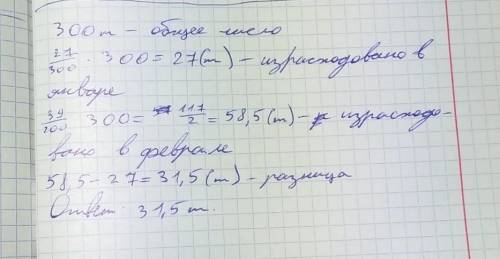 300т – общее число
27/300 · 300 = 27(т) – израсходовано в
январе
39/200 · 300 = 117/2 = 58,5(т) – израсходо-
вано в феврале
58,5 – 27 = 31,5(т) – разница
Ответ: 31,5т.